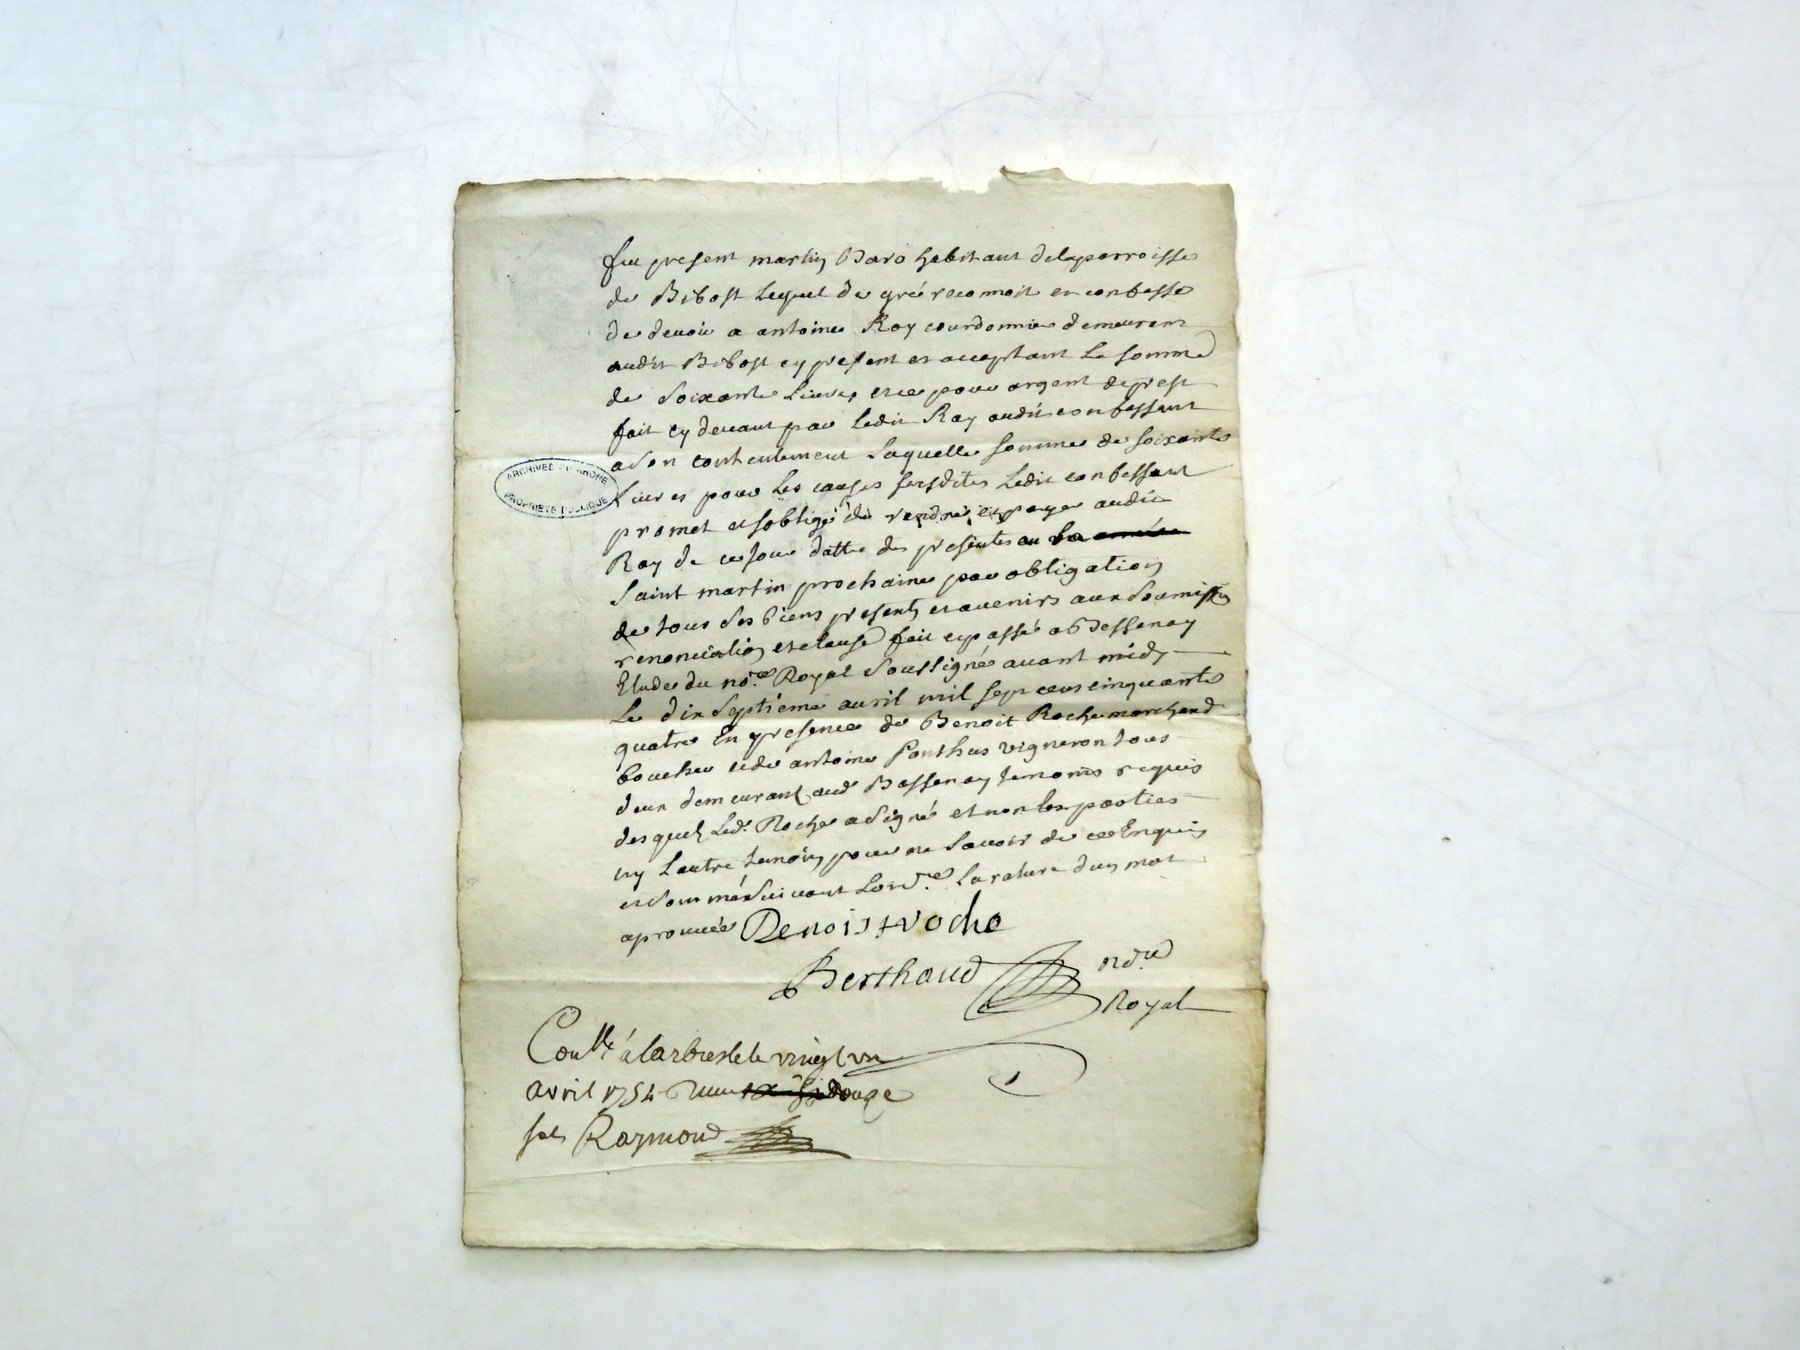 fut present martin Baro habitant delaparroisse
de Bibost Lequel de gré reconnoit et confesse
de devoir a antoine Ray courdonnier demeurant
audit Bibost cy present et acceptant La somme
de Soixante Livres et ce pour argent de prest
fait cy devant par Ledit Ray audit confessant
a son contentement Laquelle somme de soixante
Livres pour Les causes susdites Ledit confessant
promet et soblige de rendre et payer audit
Ray de ce jour datte des presentes au
Saint martin prochaine par obligation
de tous ses biens presents et avenirs aux soumission
renonciation et clause fait et passé a Bessenay
Etude du no.re Royal Soussigné avant midy
Le dix Septième avril mil sept cens cinquante
quatre En presence de Benoit Roche marchand
boucher et de antoine Ponthus vigneron tous
deux demeurant aud Bessenay temoins requis
desquels Led. Roche a Signé et non les parties
ny Lautre temoin pour ne Savoir de ce Enquis
et Sommé Suivant Lord.ce La rature dun mot
aprouvée Benoist roche
Berthaud no.re
Royal
ARCHIVES DU RHONE
PROPRIETE PUBLIQUE
Conllé à Larbresle le vingt un
avril 1754 douze
sols Raymond